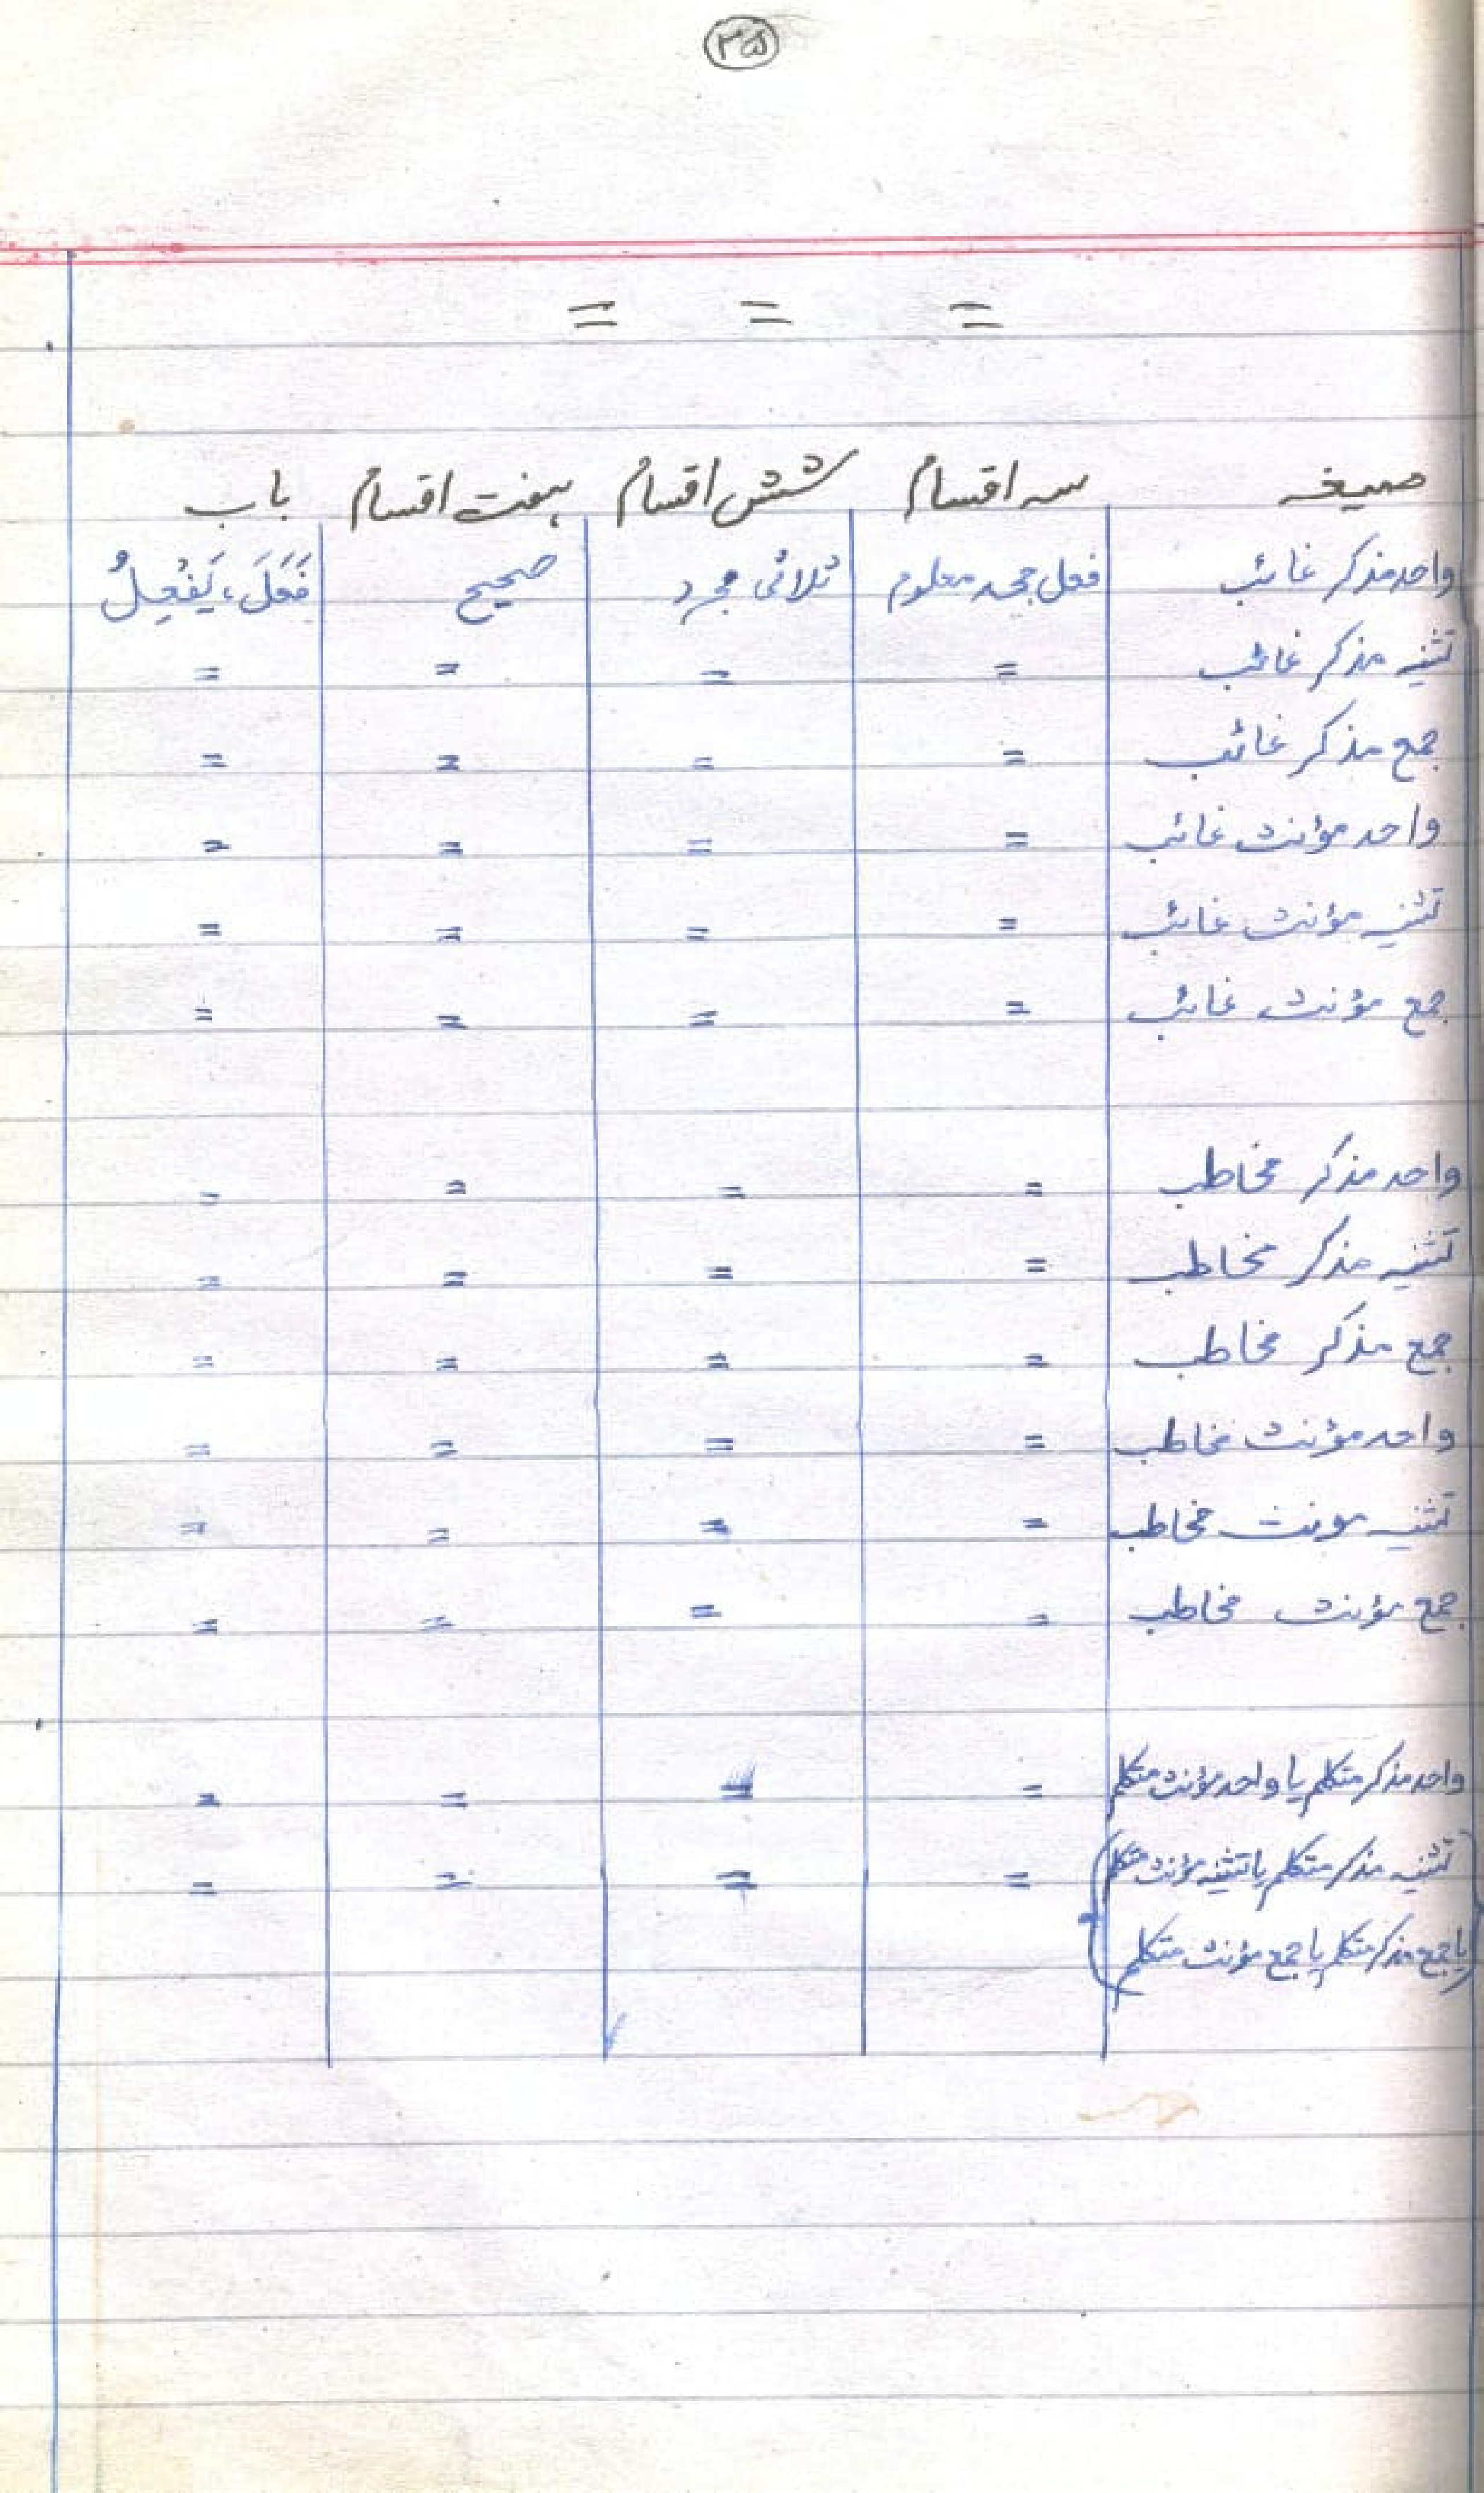 ۳۵
= = =
صیغہ سہ اقسام شش اقسام ہفت اقسام باب
واحد مذکر غائب فعل جحد معلوم ثلاثی مجرد صحیح فَعَلَ، یَفْعِلُ
تثنیہ مذکر غائب = = = =
جمع مذکر غائب = = = =
واحد مؤنث غائب = = = =
تثنیہ مؤنث غائب = = = =
جمع مؤنث غائب = = = =
واحد مذکر مخاطب = = = =
تثنیہ مذکر مخاطب = = = =
جمع مذکر مخاطب = = = =
واحد مؤنث مخاطب = = = =
تثنیہ مونث مخاطب = = = =
جمع مؤنث مخاطب = = = =
واحد مذکر متکلم یا واحد مؤنث متکلم = = = =
(تثنیہ مذکر متکلم یا تثنیہ مؤنث متکلم = = = =
یا جمع مذکر متکلم یا جمع مؤنث متکلم)